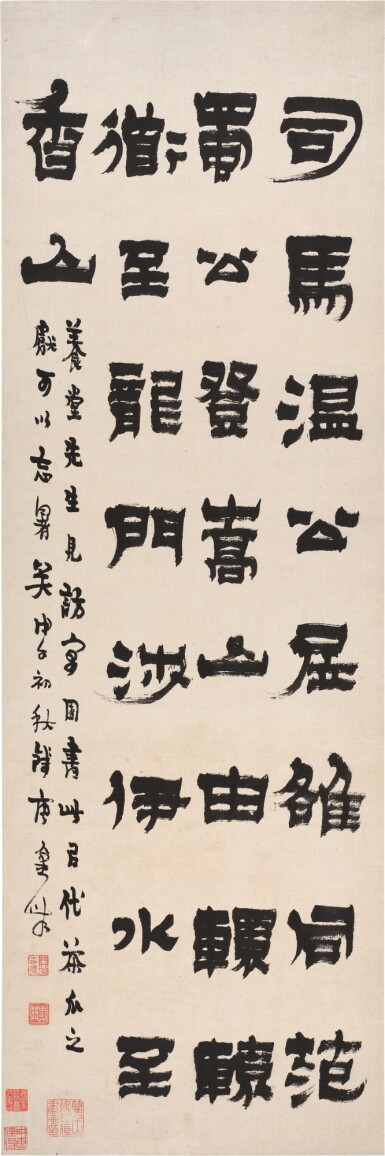 司馬溫公居雒同范
蜀公登嵩山由轘轅
道至龍門涉伊水至
香山
養堂先生見訪寓園書此㠯代茶瓜之
獻可以忘暑矣 初秋錢唐